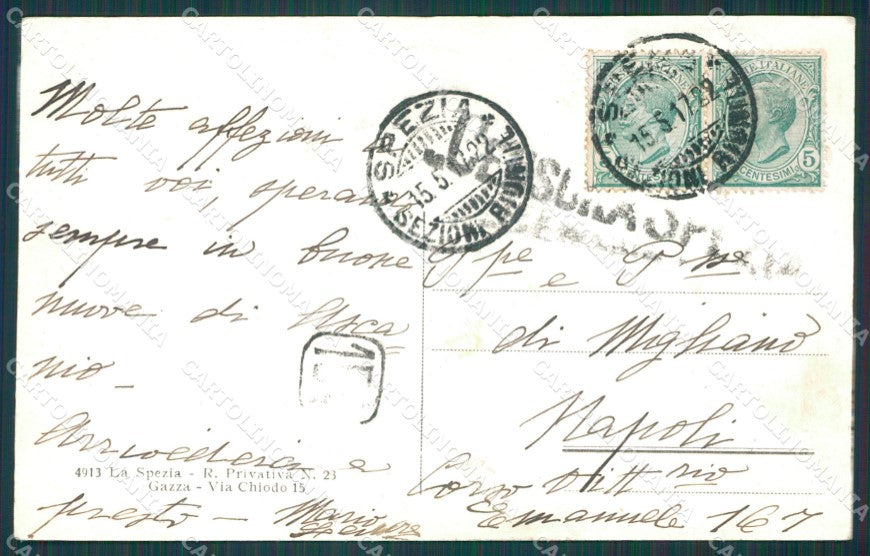 Molte affezioni a
tutti voi sperando
sempre in buone
nuove di Asca
nio -
Arrivederci a
presto - Mario
4913 La Spezia - R. Privativa N. 23
Gazza - Via Chiodo 15
SPEZIA
15.5.17.22
SEZIONI RIUNITE
POSTE ITALIANE
CENTESIMI 5
15.5.17.22
SEZIONI RIUNITE
Ppe e Pssa
di Migliano
Napoli
Corso Vitt rio
Emanuele 167
CARTOLINOMANIA